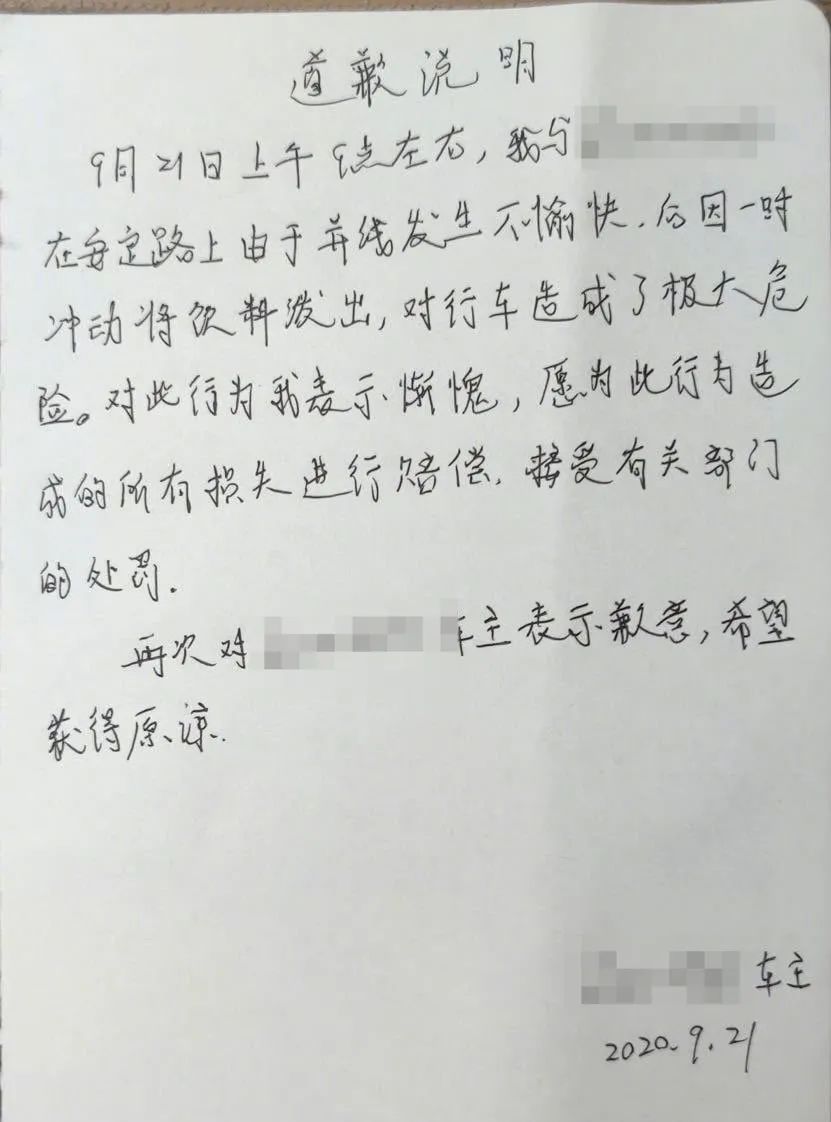 道歉说明
9月21日上午9点左右，我与
在安定路上由于并线发生不愉快.后因一时
冲动将饮料泼出,对行车造成了极大危
险。对此行为我表示惭愧,愿为此行为造
成的所有损失进行赔偿.接受有关部门
的处罚.
再次对 车主表示歉意,希望
获得原谅.
车主
2020.9.21